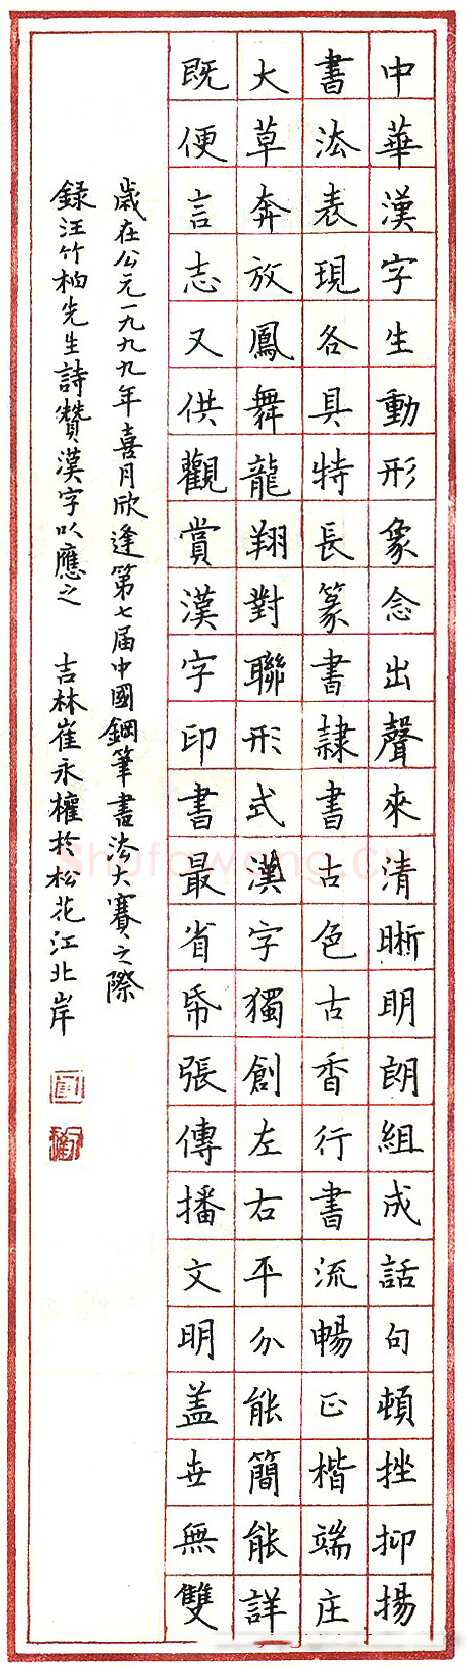 中華漢字生動形象念出聲來清晣明朗組成話句頓挫抑揚
書法表現各具特長篆書隸書古色古香行書流暢正楷端庄
大草奔放鳳舞龍翔對聯形式漢字獨創左右平分能簡能詳
既便言志又供觀賞漢字印書最省帋張傳播文明盖世無雙
歲在公元一九九九年喜月欣逢第七届中國鋼筆書法大賽之際
錄汪竹柏先生詩贊漢字以應之 吉林崔永權於松花江北岸